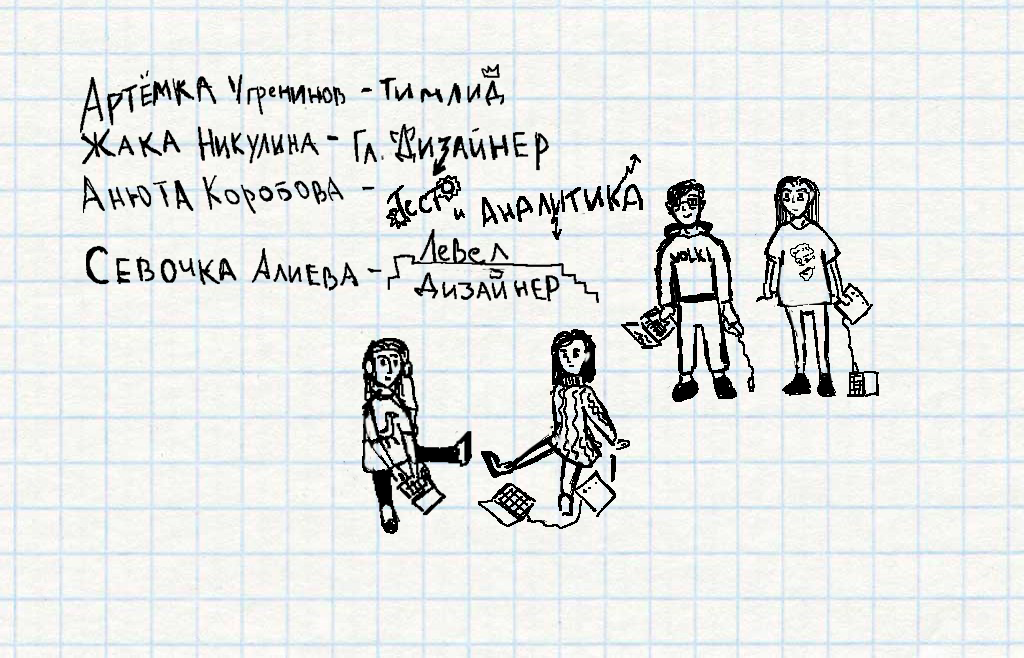 Артёмка Угренинов - тимлид
Жака Никулина - Гл. Дизайнер
Анюта Коробова - Тест и Аналитика
Севочка Алиева - Левел
Дизайнер
VOLKI